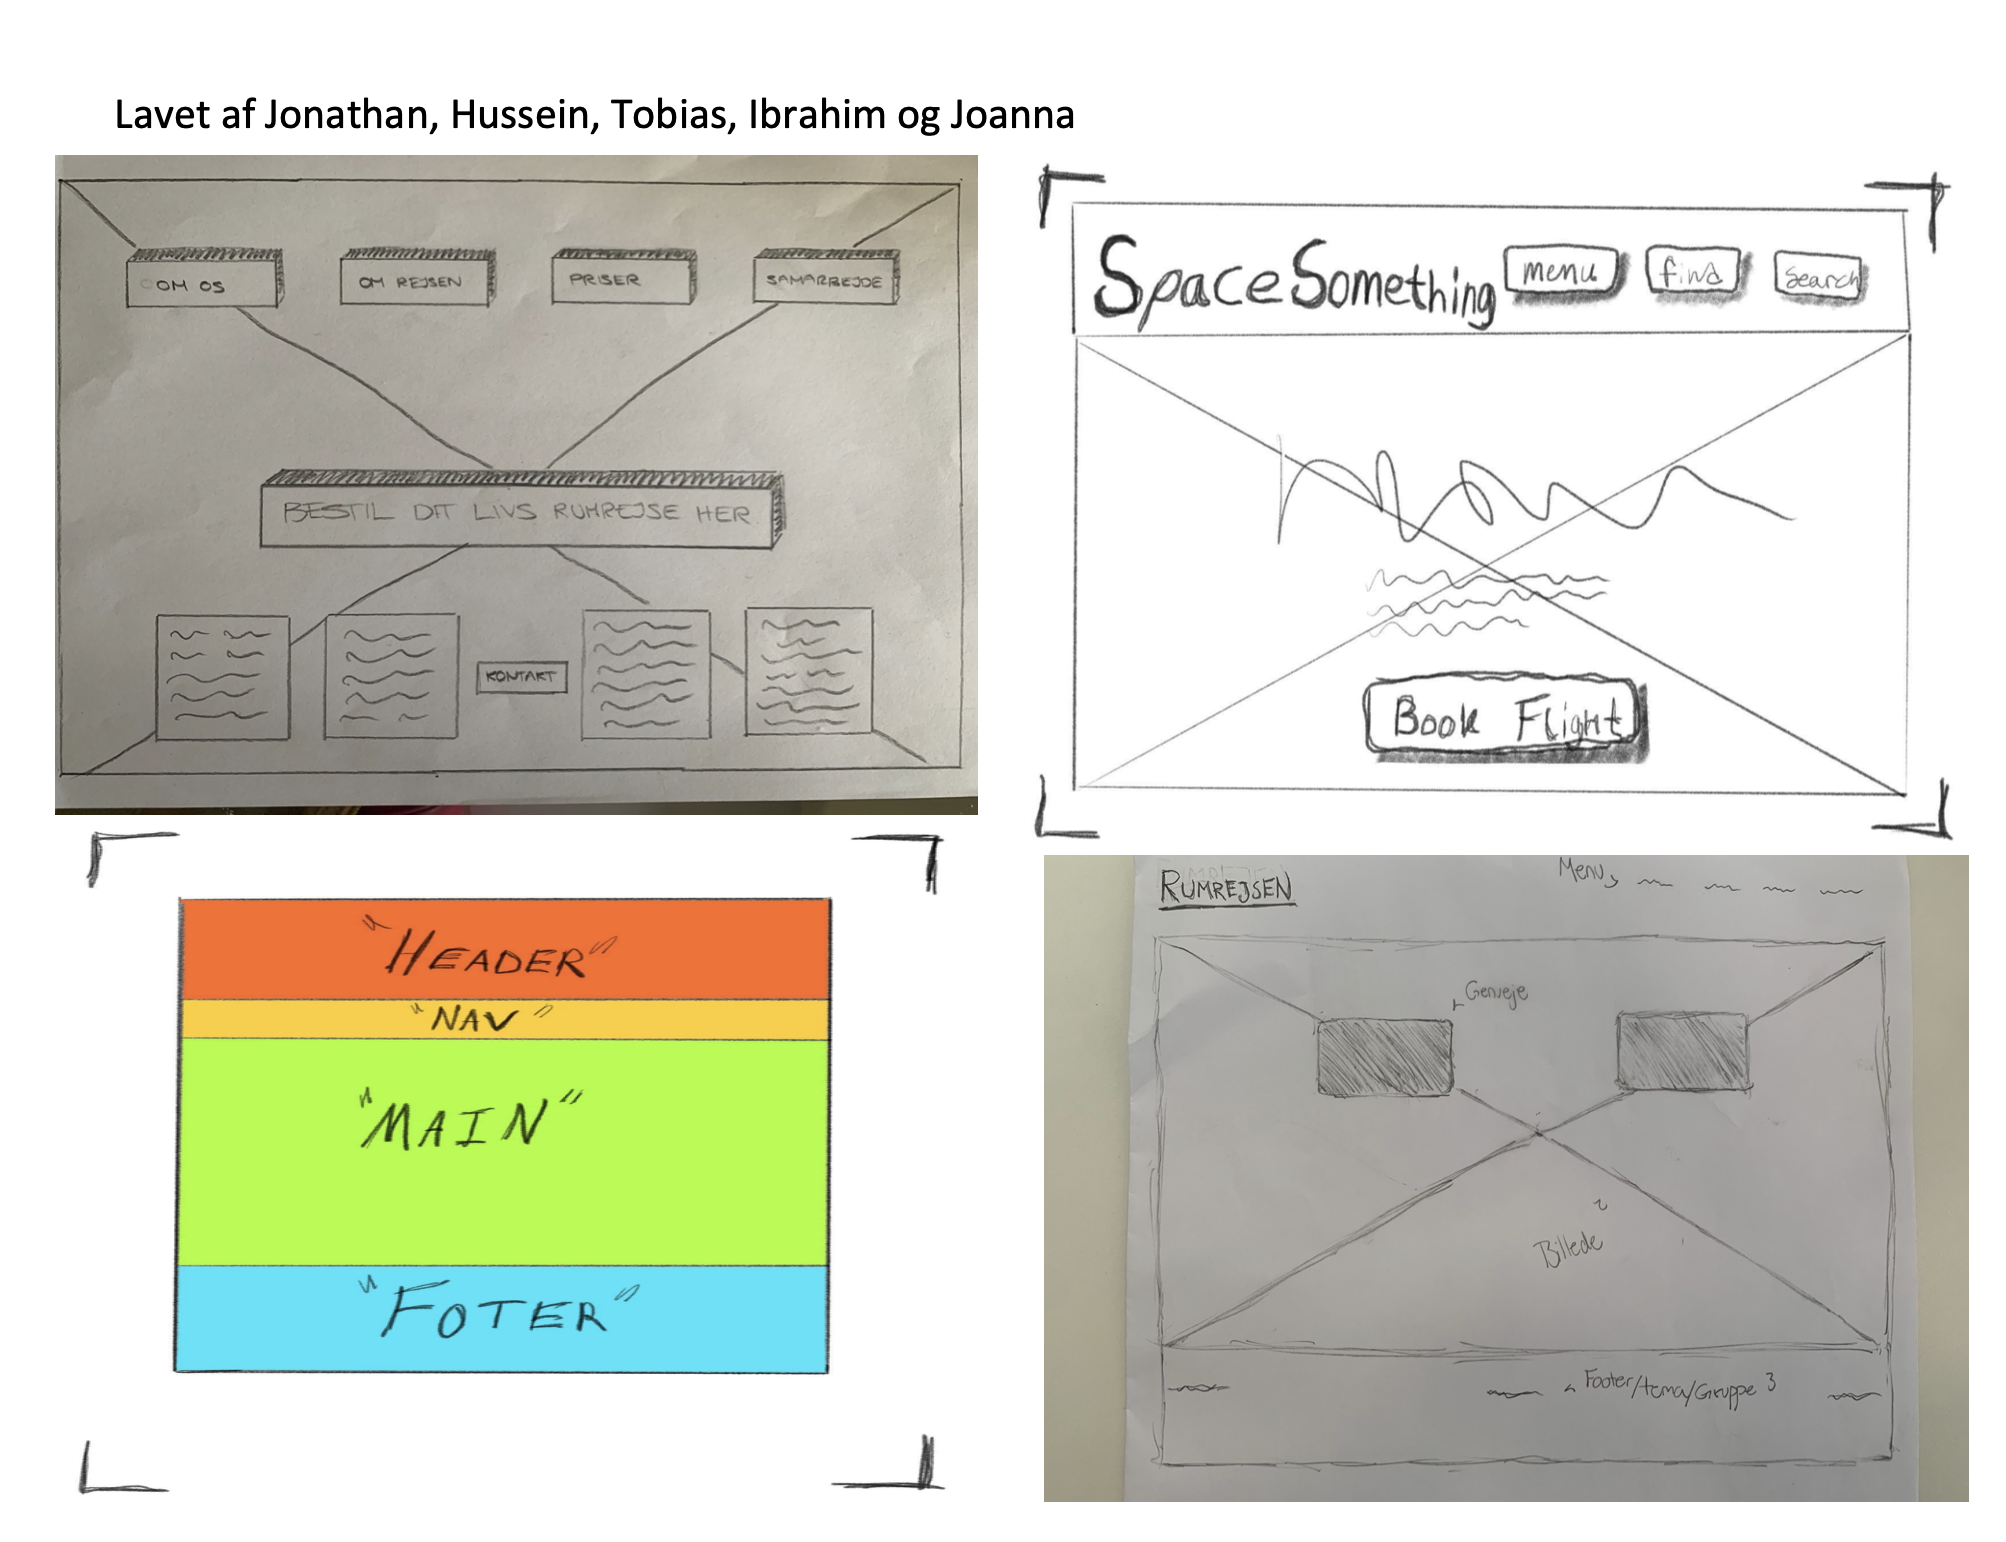 Lavet af Jonathan, Hussein, Tobias, Ibrahim og Joanna
OM OS
OM REJSEN
PRISER
SAMARBEJDE
BESTIL DIT LIVS RUMREJSE HER
KONTAKT
SpaceSomething
menu
find
Search
Book Flight
"HEADER"
"NAV"
"MAIN"
"FOTER"
RUMREJSEN
Menu
Genveje
Billede
Footer/tema/Gruppe 3